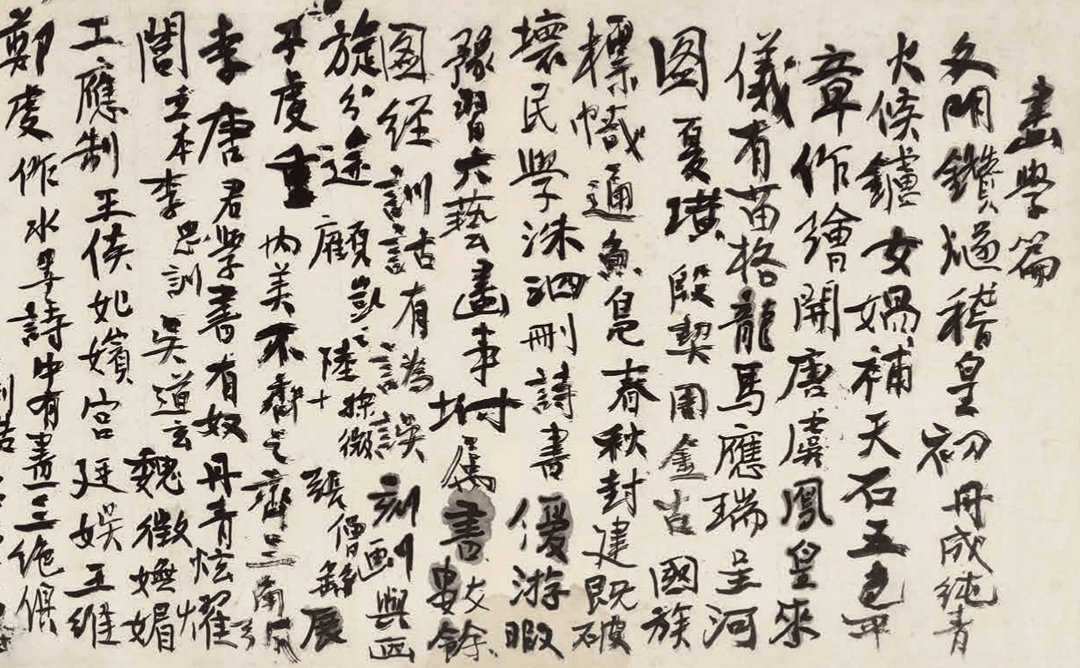 畫學篇
文明鑽燧稽皇初丹成純青
火候鑪女媧補天石五色
章作繪開唐虞鳳皇來
儀有苗格龍馬應瑞呈河
圖夏璜殷契周金古國族
標幟邇魚鳧春秋封建既破
壞民學洙泗刪詩書優游暇
豫習六藝畫事附屬書數餘
圖經訓詁有譌誤刻劃與
旋分途顧愷之陸探微張僧繇展
子虔重內美不齊之齊三角弧
李唐君學書有奴丹青炫耀
閻立本李思訓吳道玄魏徵嫵媚
工應制王侯妃嬪宮廷娛王維
鄭虔作水墨詩中有畫三絕俱